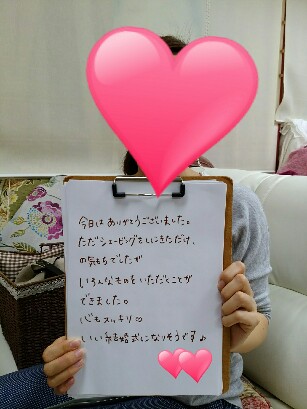 今日はありがとうございました。
ただシェービングをしにきただけ、
の気もちでしたが
いろんなものをいただくことが
できました。
心もスッキリ♡
いい結婚式になりそうです♪